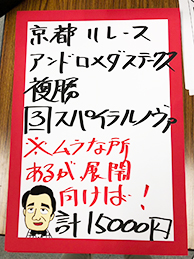 京都11レース
アンドロメダステークス
複勝
3スパイラルノヴァ
※ムラな所
あるが展開
向けば！
計15000円